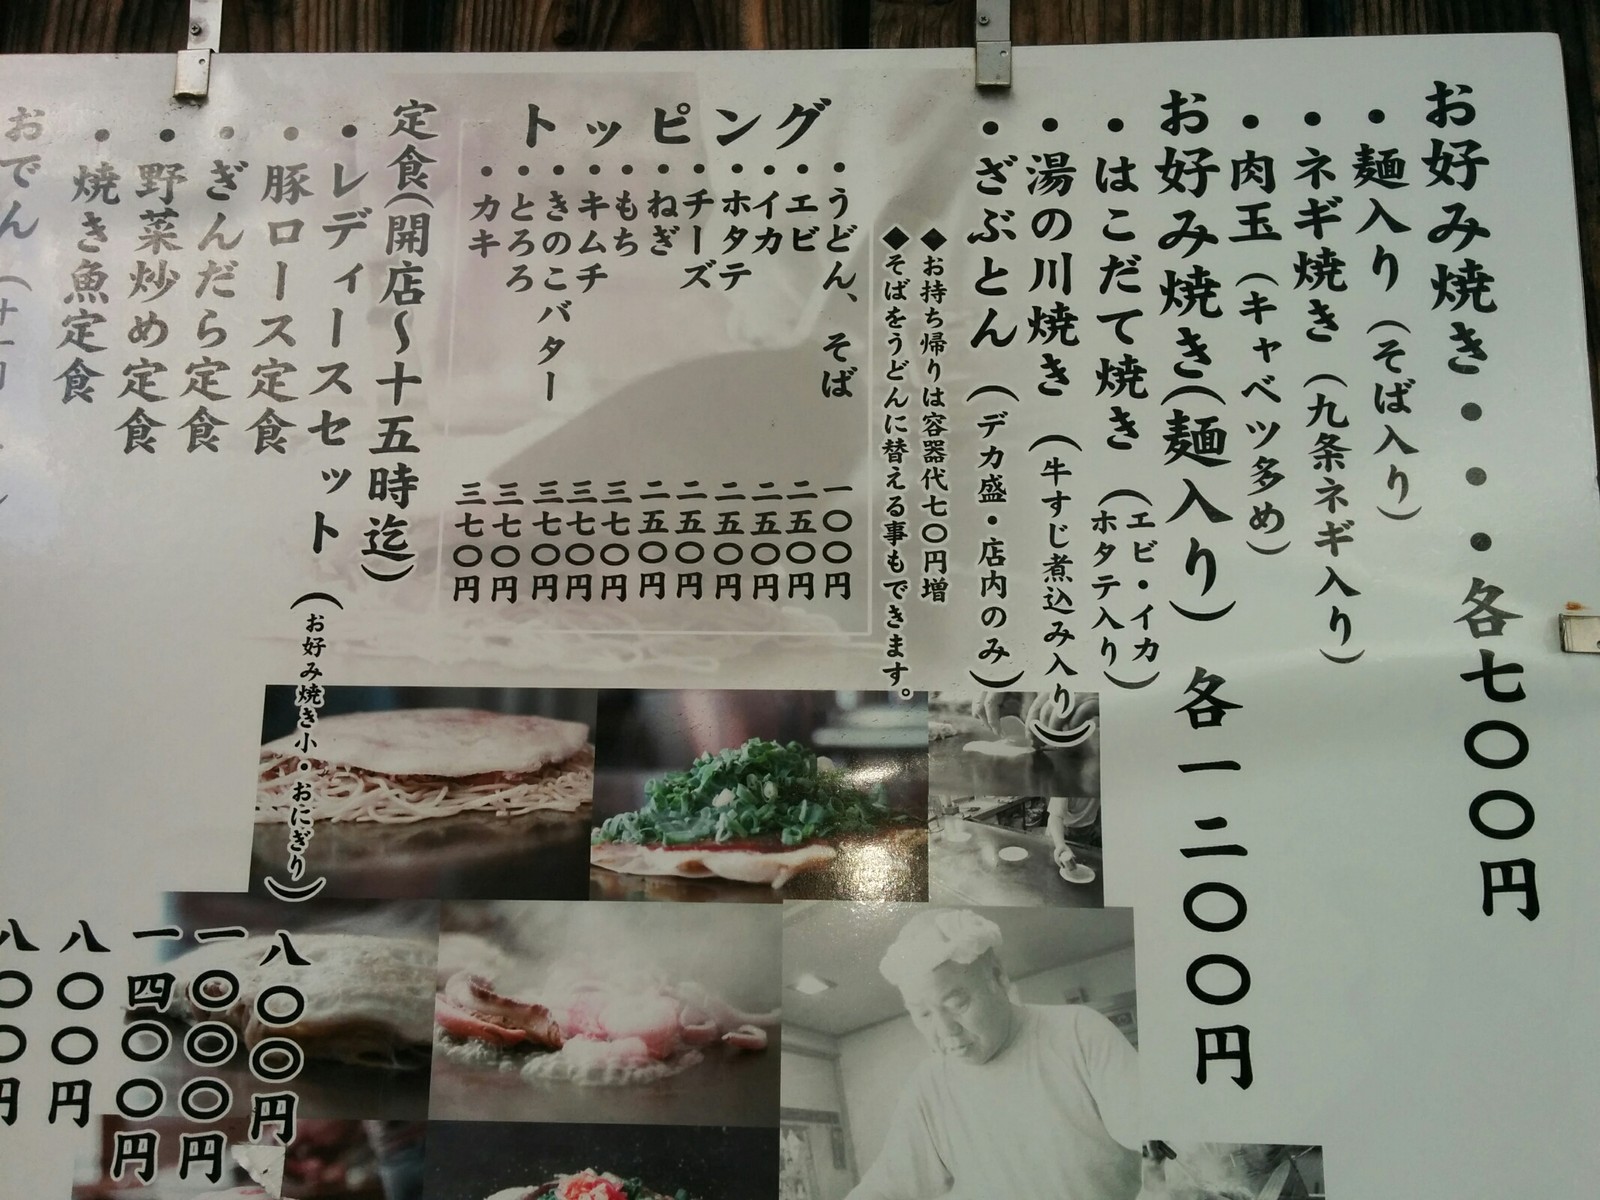 お好み焼き・・・各七〇〇円
・麺入り（そば入り）
・ネギ焼き（九条ネギ入り）
・肉玉（キャベツ多め）
お好み焼き（麺入り） 各一二〇〇円
・はこだて焼き（エビ・イカ
ホタテ入り）
・湯の川焼き（牛すじ煮込み入り）
・ざぶとん（デカ盛・店内のみ）
◆お持ち帰りは容器代七〇円増
◆そばをうどんに替える事もできます。
トッピング
・うどん、そば 一〇〇円
・エビ 二五〇円
・イカ 二五〇円
・ホタテ 二五〇円
・チーズ 二五〇円
・ねぎ 二五〇円
・もち 三七〇円
・キムチ 三七〇円
・きのこバター 三七〇円
・とろろ 三七〇円
・カキ 三七〇円
定食（開店〜十五時迄）
・レディースセット（お好み焼き小・おにぎり） 八〇〇円
・豚ロース定食 一〇〇〇円
・ぎんだら定食 一四〇〇円
・野菜炒め定食 八〇〇円
・焼き魚定食 八〇〇円
おでん